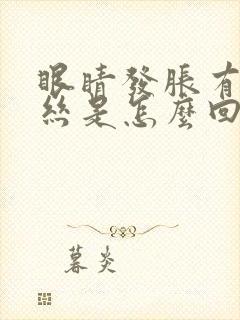 眼睛發脹有
絲是怎麼回
暮炎